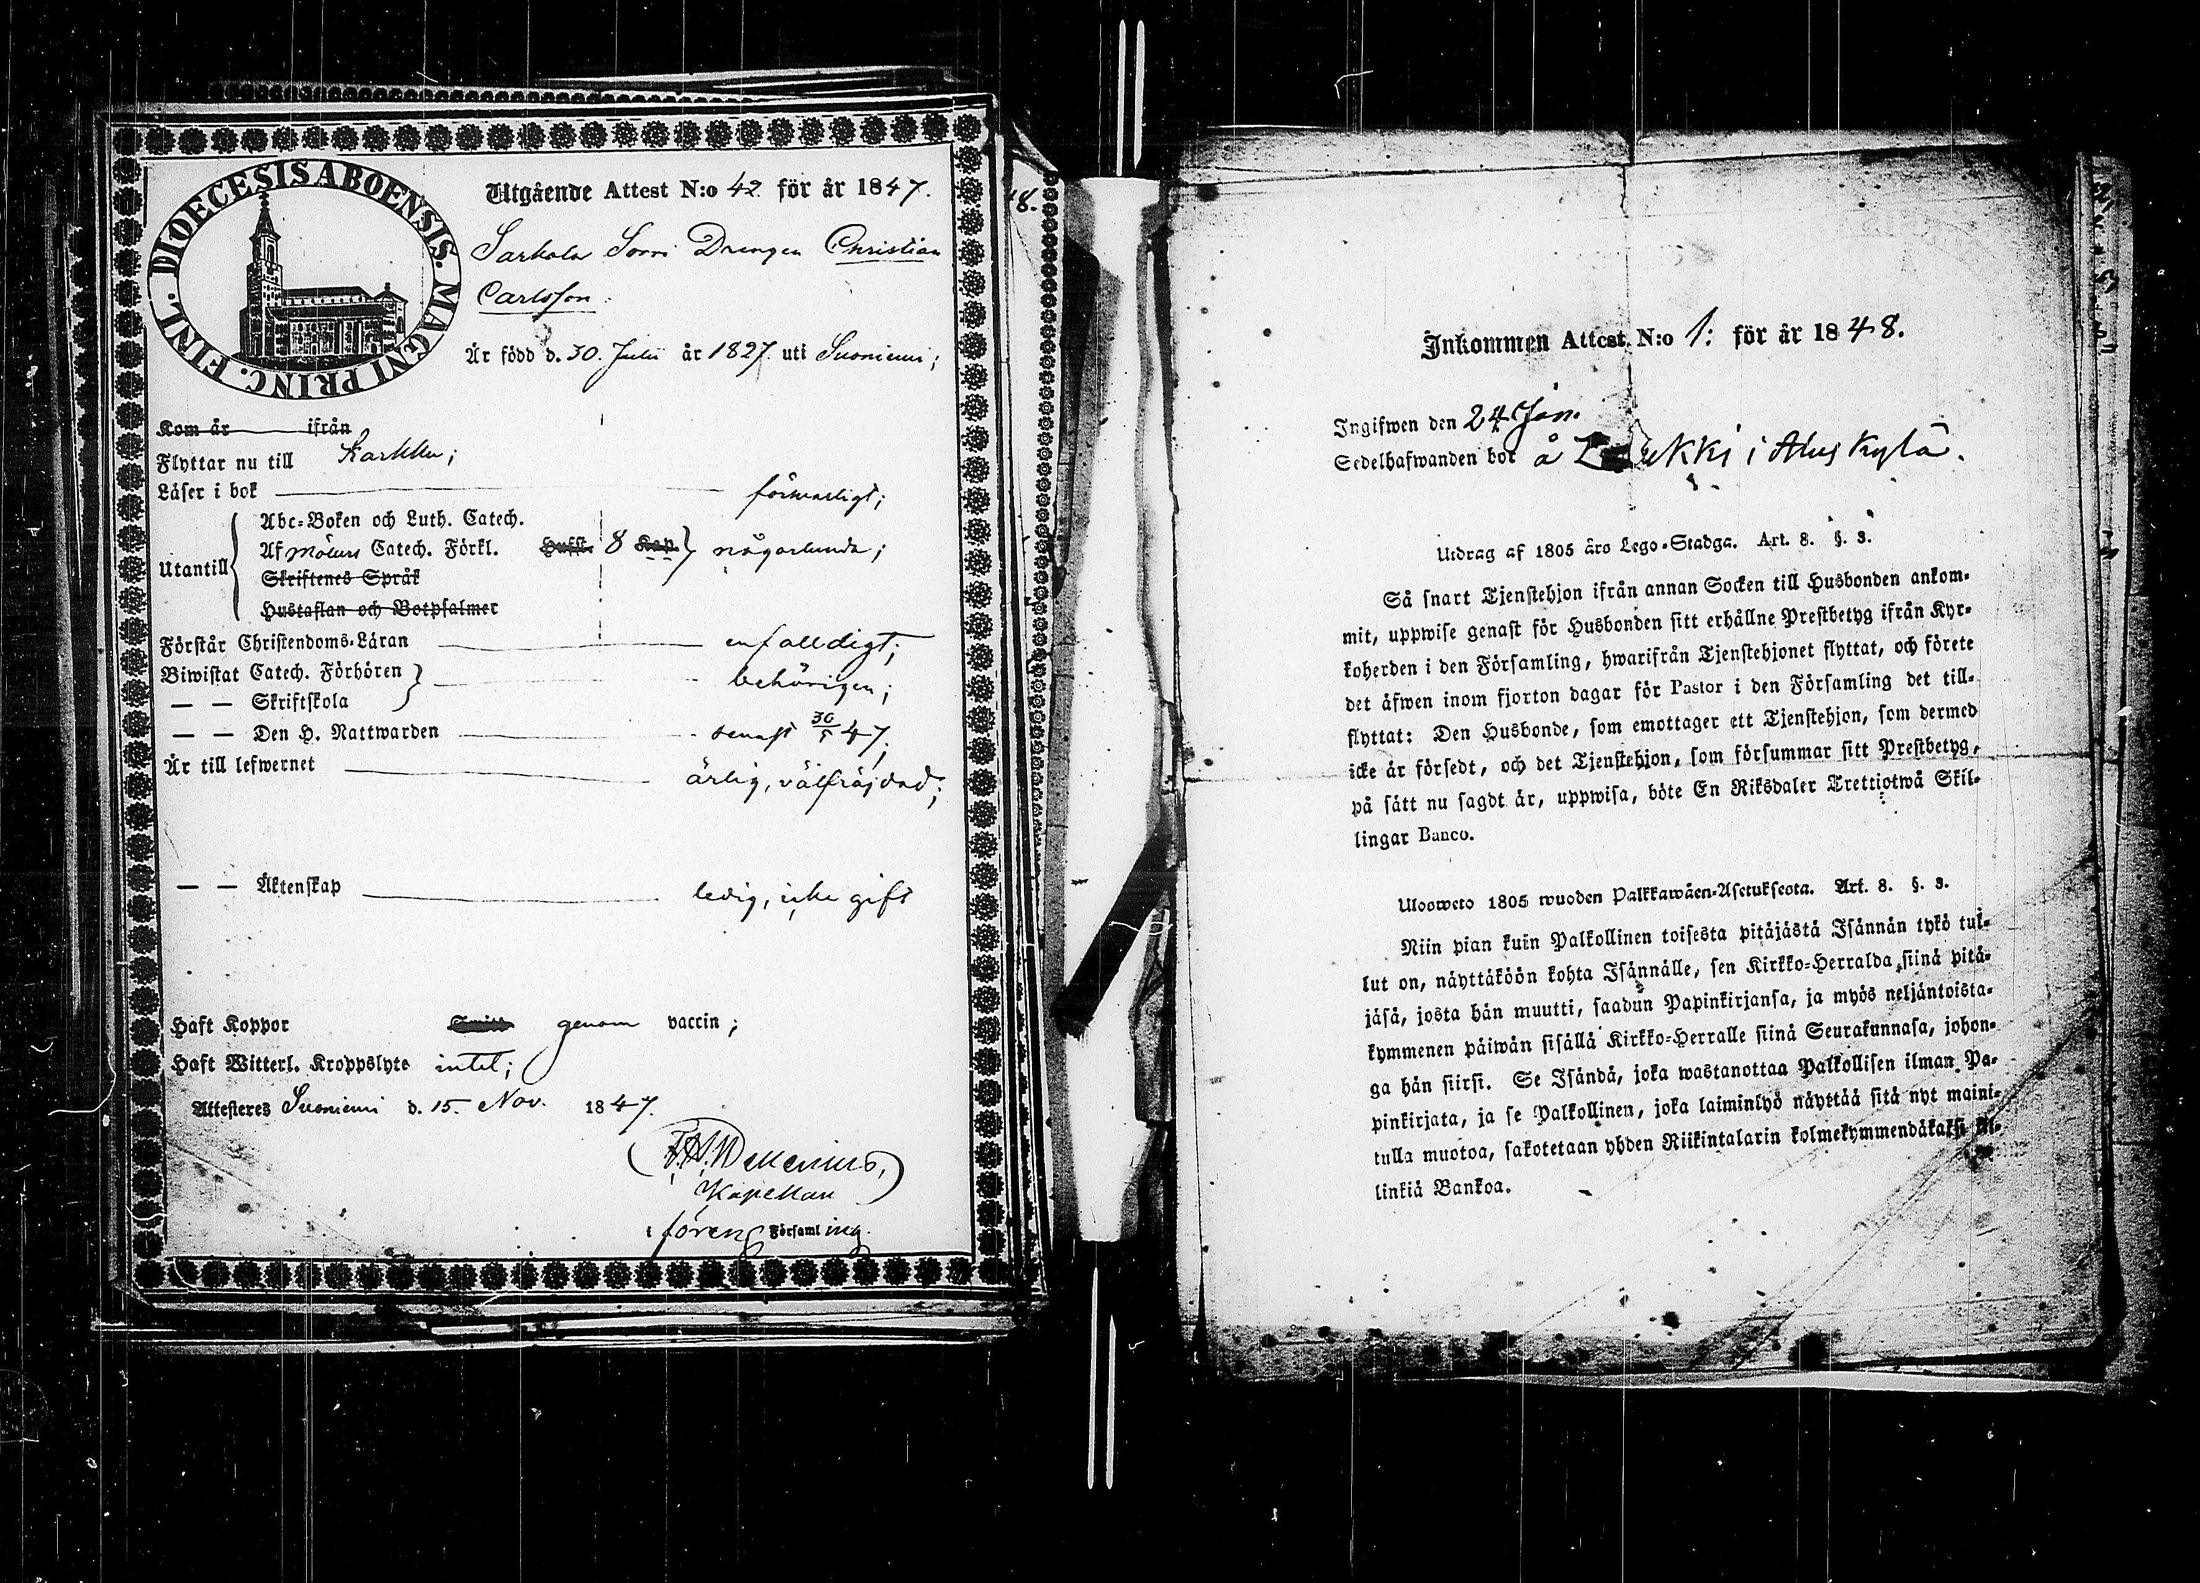 DIOECESIS ABOENSIS. MAGNI PRINC. FINL.
Utgående Attest N:o 42 för år 1847.
Sarkola Sorri Drengen Christian
Carlsson.
Är född d. 30. Julii år 1827. uti Suoniemi;
Kom år ifrån
Flyttar nu till Karkku;
Läser i bok försvarligt;
Abc-Boken och Luth. Catech.
Utantill Af Möllers Catech. Förkl. Husst. 8 Kap. någorlunda;
Skriftenes Språk
Hustaflan och Botpsalmer
Förstår Christendoms-Läran enfalldigt;
Biwistat Catech. Förhören behörigen;
— — Skriftskola
— — Den H. Nattwarden senast 30/5 47;
Är till lefwernet ärlig, välfräjdad;
— — Äktenskap ledig, icke gift
Haft Koppor genom vaccin;
Haft Witterl. Kroppslyte intet;
Attesteres Suoniemi d. 15. Nov. 1847.
Kapellan
i föreng Församling.
8.
Inkommen Attest N:o 1: för år 1848.
Ingifwen den 24 Jan.
Sedelhafwanden bor å i Aluskylä.
Utdrag af 1805 års Lego-Stadga. Art. 8. §. 3.
Så snart Tjenstehjon ifrån annan Socken till Husbonden ankom-
mit, uppwise genast för Husbonden sitt erhållne Prestbetyg ifrån Kyr-
koherden i den Församling, hwarifrån Tjenstehjonet flyttat, och förete
det äfwen inom fjorton dagar för Pastor i den Församling det till-
flyttat: Den Husbonde, som emottager ett Tjenstehjon, som dermed
icke är försedt, och det Tjenstehjon, som försummar sitt Prestbetyg,
på sätt nu sagdt är, uppwisa, böte En Riksdaler Trettiotwå Skil-
lingar Banco.
Ulosweto 1805 wuoden Palkkawäen-Asetuksesta. Art. 8. §. 3.
Niin pian kuin Palkollinen toisesta pitäjästä Isännän tykö tul-
lut on, näyttäköön kohta Isännälle, sen Kirkko-Herralda siinä pitä-
jäsä, josta hän muutti, saadun Papinkirjansa, ja myös neljäntoista-
kymmenen päiwän sisällä Kirkko-Herralle siinä Seurakunnasa, johon-
ga hän siirsi. Se Isändä, joka wastanottaa Palkollisen ilman Pa-
pinkirjata, ja se Palkollinen, joka laiminlyö näyttää sitä nyt maini-
tulla muotoa, sakotetaan yhden Riikintalarin kolmekymmendäkaksi kil-
linkiä Bankoa.